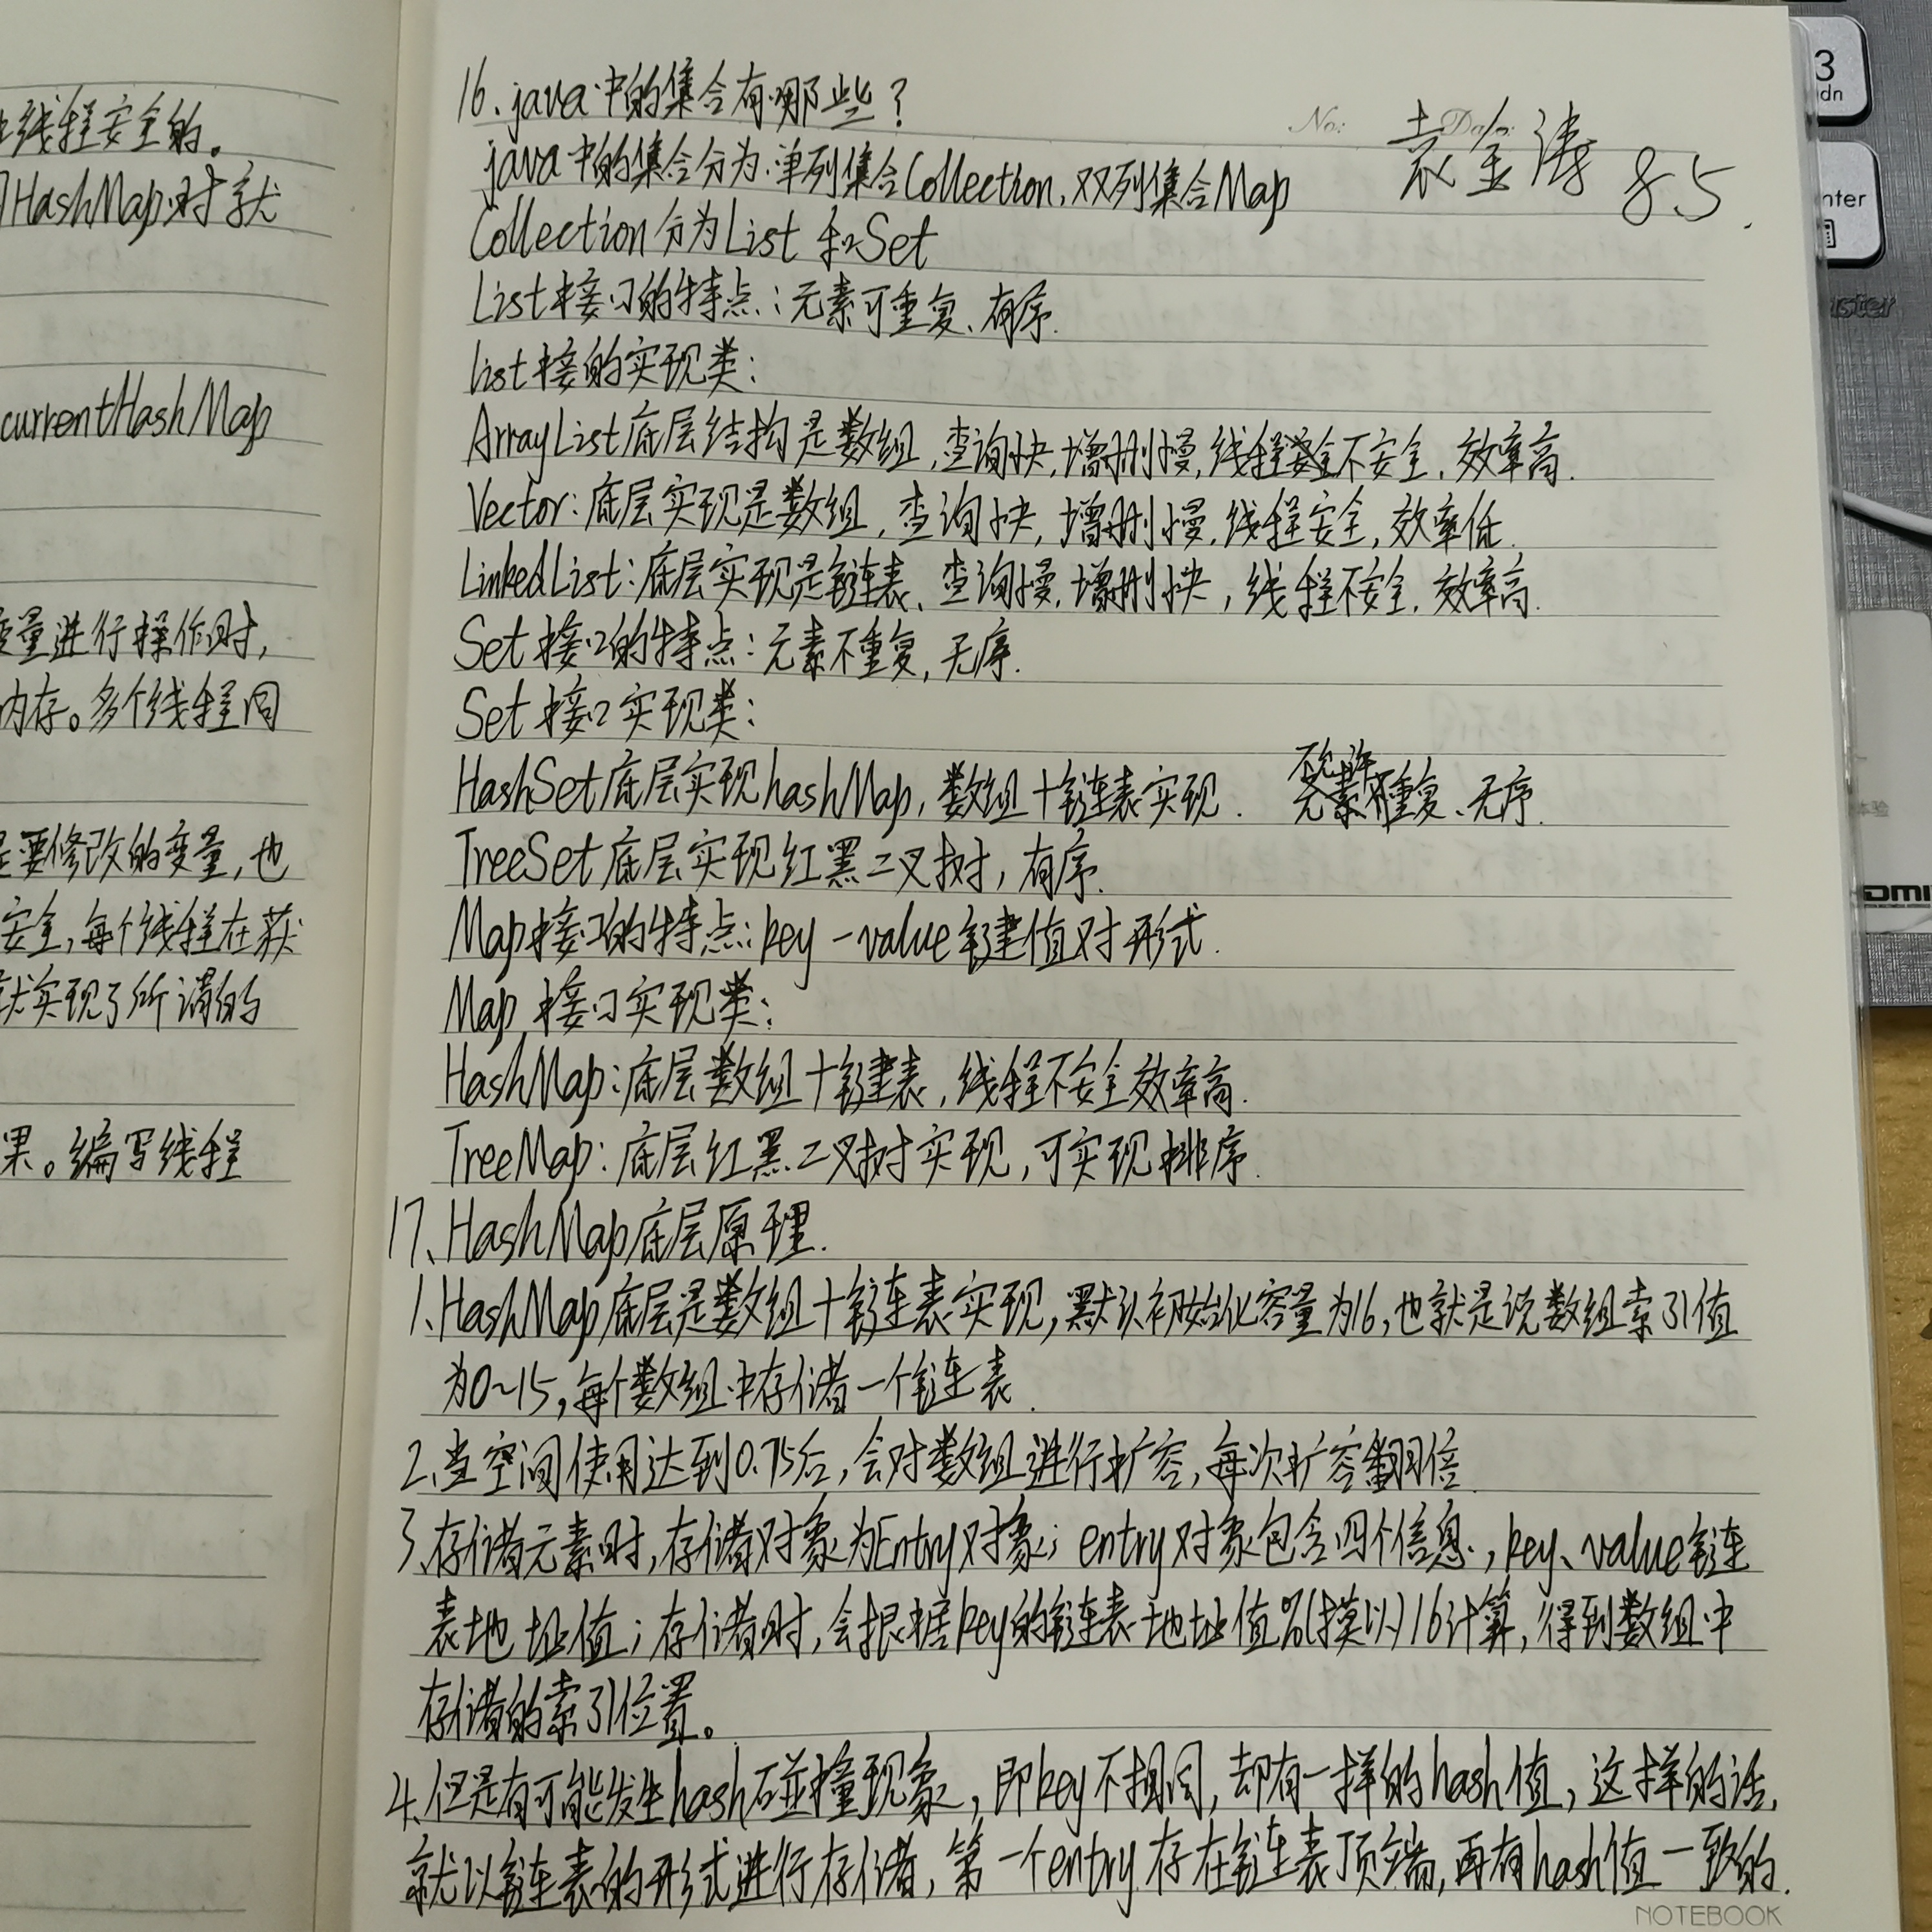 线程安全的。
HashMap时就
currentHashMap
量进行操作时,
内存。多个线程同
是要修改的变量,也
安全,每个线程在获
就实现了所谓的
果。编写线程
16、java中的集合有哪些?
No: Date:
袁金涛 8.5.
java中的集合分为:单列集合Collection,双列集合Map
Collection分为List和Set
List接口的特点:元素可重复、有序.
list接的实现类:
ArrayList底层结构是数组,查询快,增删慢,线程不安全,效率高.
Vector:底层实现是数组,查询快,增删慢,线程安全,效率低.
LinkedList:底层实现是链表、查询慢,增删快,线程不安全,效率高.
Set接口的特点:元素不重复,无序.
Set接口实现类:
HashSet底层实现hashMap,数组+链表实现. 不允许重复、无序.
TreeSet底层实现红黑二叉树,有序.
Map接口的特点:key-value键值对形式.
Map接口实现类:
HashMap:底层数组+链表,线程不安全效率高.
TreeMap:底层红黑二叉树实现,可实现排序.
17、HashMap底层原理.
1、HashMap底层是数组+链表实现,默认初始化容量为16,也就是说数组索引值
为0~15,每个数组中存储一个链表.
2、当空间使用达到0.75后,会对数组进行扩容,每次扩容翻倍
3、存储元素时,存储对象为Entry对象;entry对象包含四个信息,key、value链
表地址值;存储时,会根据key的链表地址值%(摸以)16计算,得到数组中
存储的索引位置。
4、但是有可能发生hash碰撞现象,即key不相同,却有一样的hash值,这样的话,
就以链表的形式进行存储,第一个entry存在链表顶端,再有hash值一致的.
NOTEBOOK
3
dn
nter
HDMI